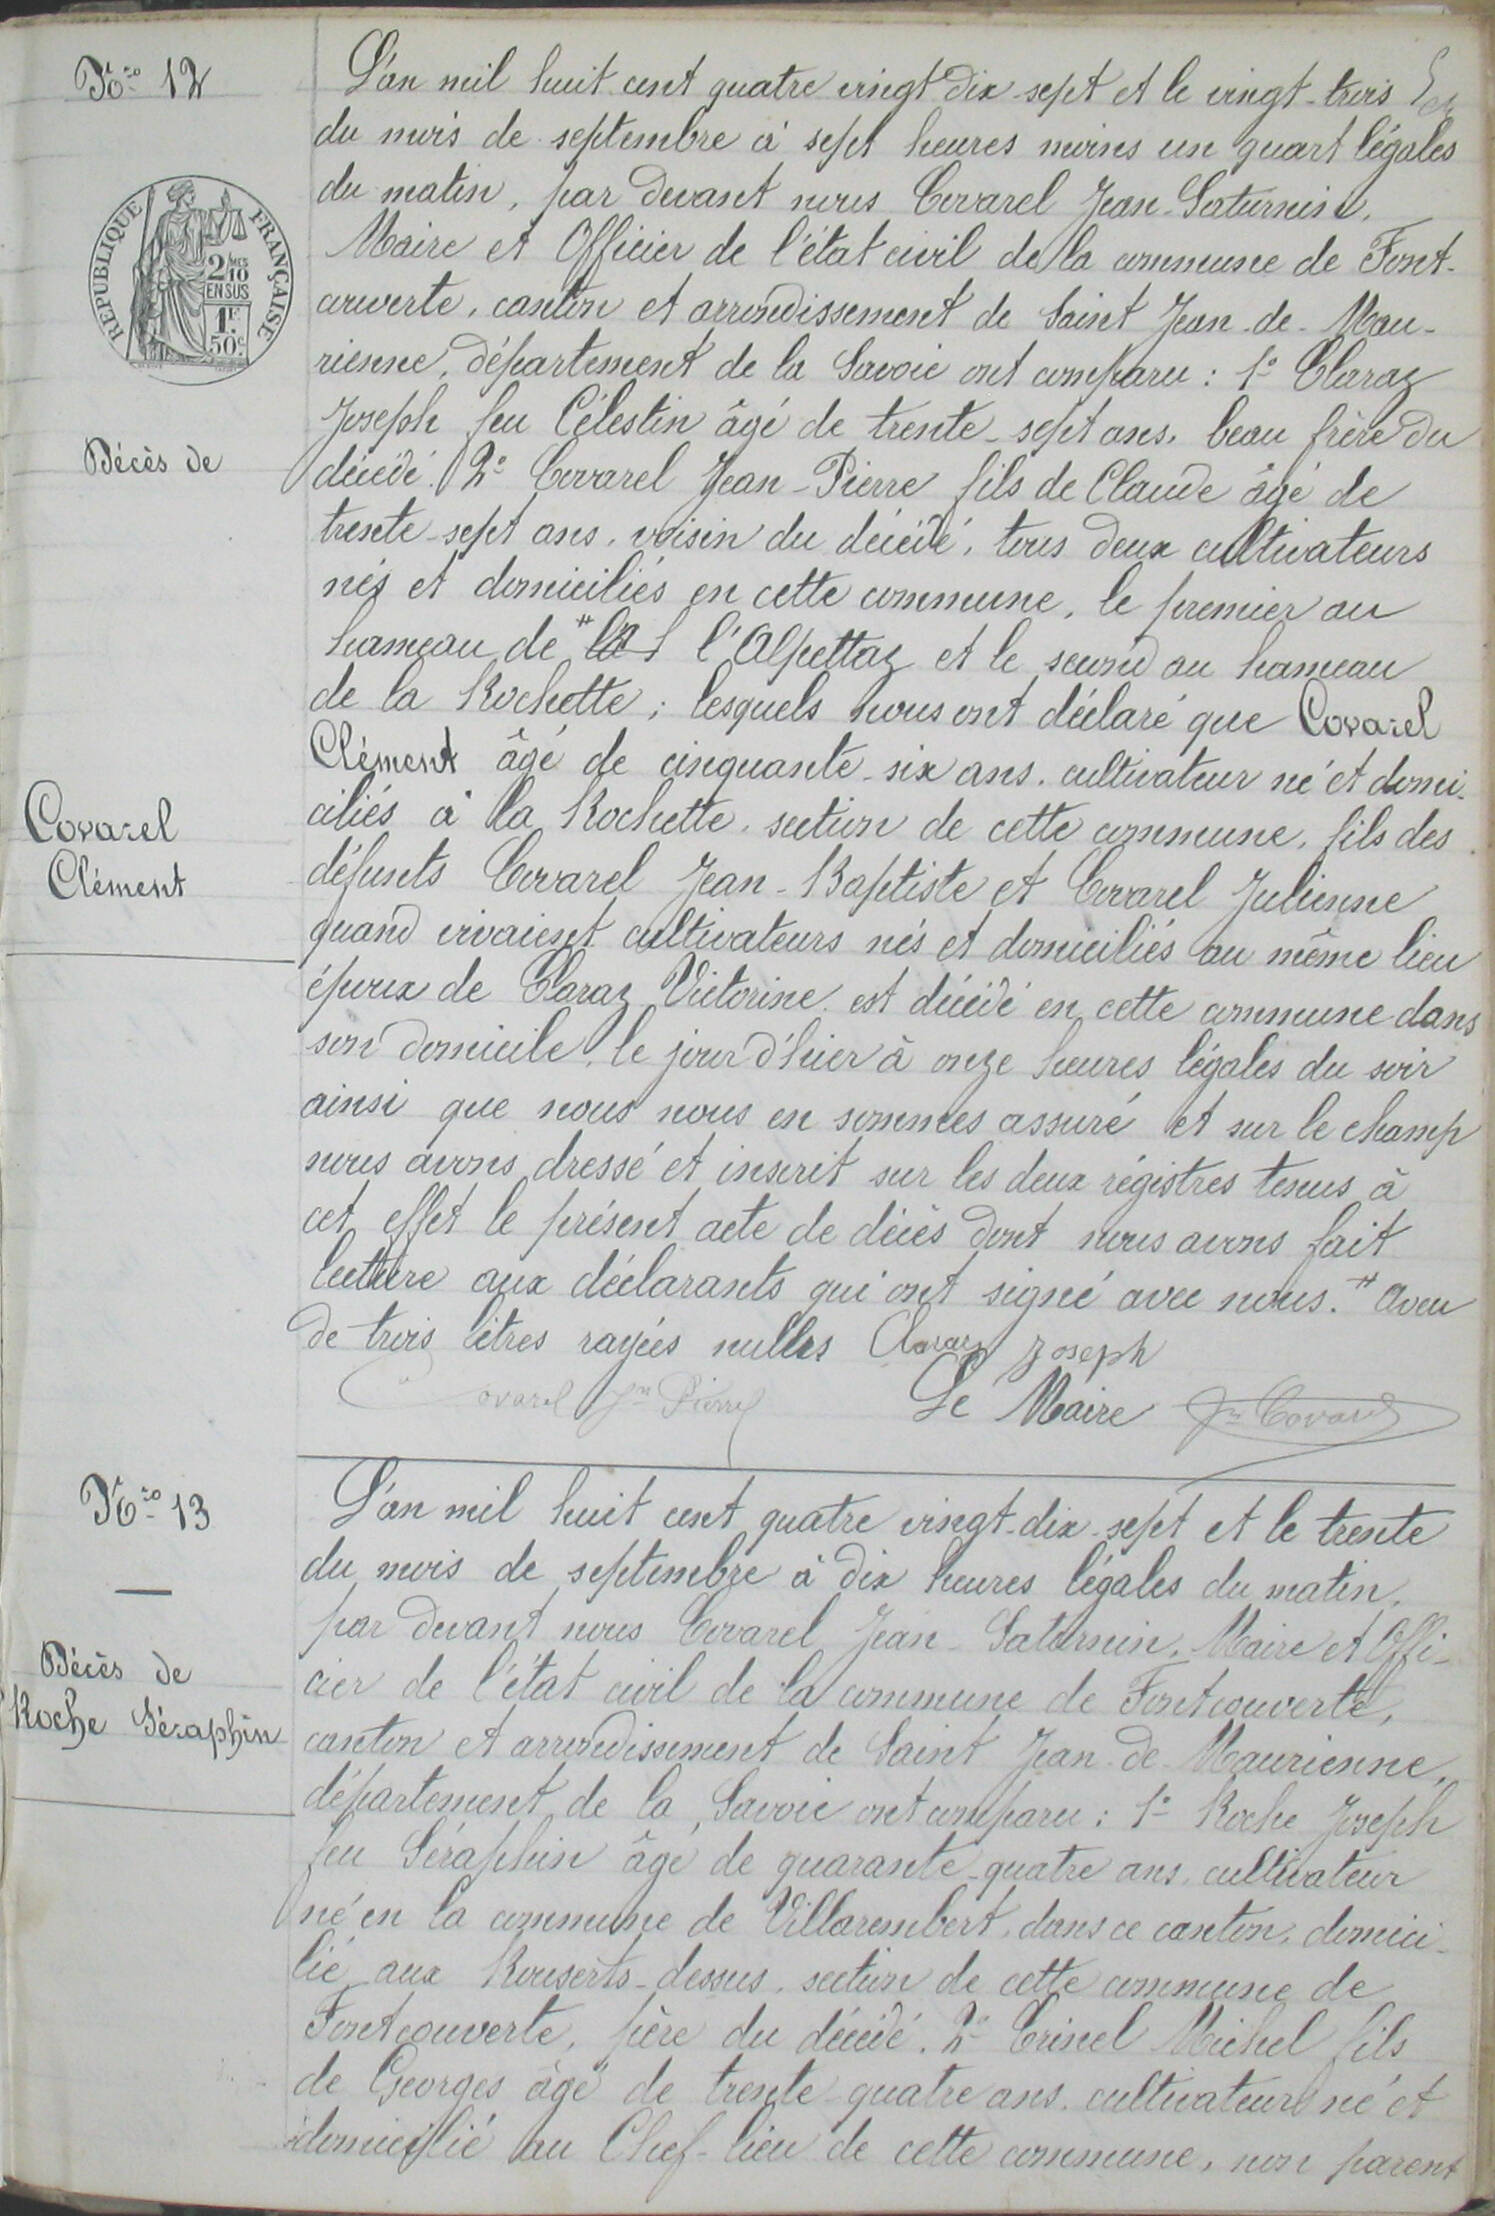 Nº 12
RÉPUBLIQUE FRANÇAISE
2/10 MES
EN SUS
1F
50c
Décès de
Covarel
Clément
L'an mil huit cent quatre vingt dix-sept et le vingt-trois
du mois de septembre à sept heures moins un quart légales
du matin, par devant nous Covarel Jean-Saturnin,
Maire et Officier de l'état civil de la commune de Font-
couverte, canton et arrondissement de Saint Jean-de-Mau-
rienne, département de la Savoie ont comparu : 1º Claraz
Joseph feu Célestin âgé de trente-sept ans, beau frère du
décédé. 2º Covarel Jean-Pierre fils de Claude âgé de
trente-sept ans, voisin du décédé, tous deux cultivateurs
nés et domiciliés en cette commune, le premier au
hameau de # l'Alpettaz et le second au hameau
de la Rochette ; lesquels nous ont déclaré que Covarel
Clément âgé de cinquante-six ans, cultivateur né et domi-
ciliés à la Rochette, section de cette commune, fils des
défunts Covarel Jean-Baptiste et Covarel Julienne
quand vivaient cultivateurs nés et domiciliés au même lieu
époux de Claraz Victorine est décédé en cette commune dans
son domicile, le jour d'hier à onze heures légales du soir
ainsi que nous nous en sommes assuré et sur le champ
nous avons dressé et inscrit sur les deux régistres tenus à
cet effet le présent acte de décès dont nous avons fait
lecture aux déclarants qui ont signé avec nous. # aveu
de trois lêtres rayées nulles Claraz Joseph
Covarel Jn Pierre Le Maire Jn Covarel
Nº 13
Décès de
Roche Séraphin
L'an mil huit cent quatre vingt-dix-sept et le trente
du mois de septembre à dix heures légales du matin,
par devant nous Covarel Jean-Saturnin, Maire et Offi-
cier de l'état civil de la commune de Fontcouverte,
canton et arrondissement de Saint Jean-de-Maurienne,
département de la Savoie ont comparu : 1º Roche Joseph
feu Séraphin âgé de quarante-quatre ans, cultivateur
né en la commune de Villarembert, dans ce canton, domici-
lié aux Rouserts-dessus, section de cette commune de
Fontcouverte, père du décédé. 2º Crinel Michel fils
de Georges âgé de trente-quatre ans, cultivateur né et
domicilié au Chef-lieu de cette commune, non parent